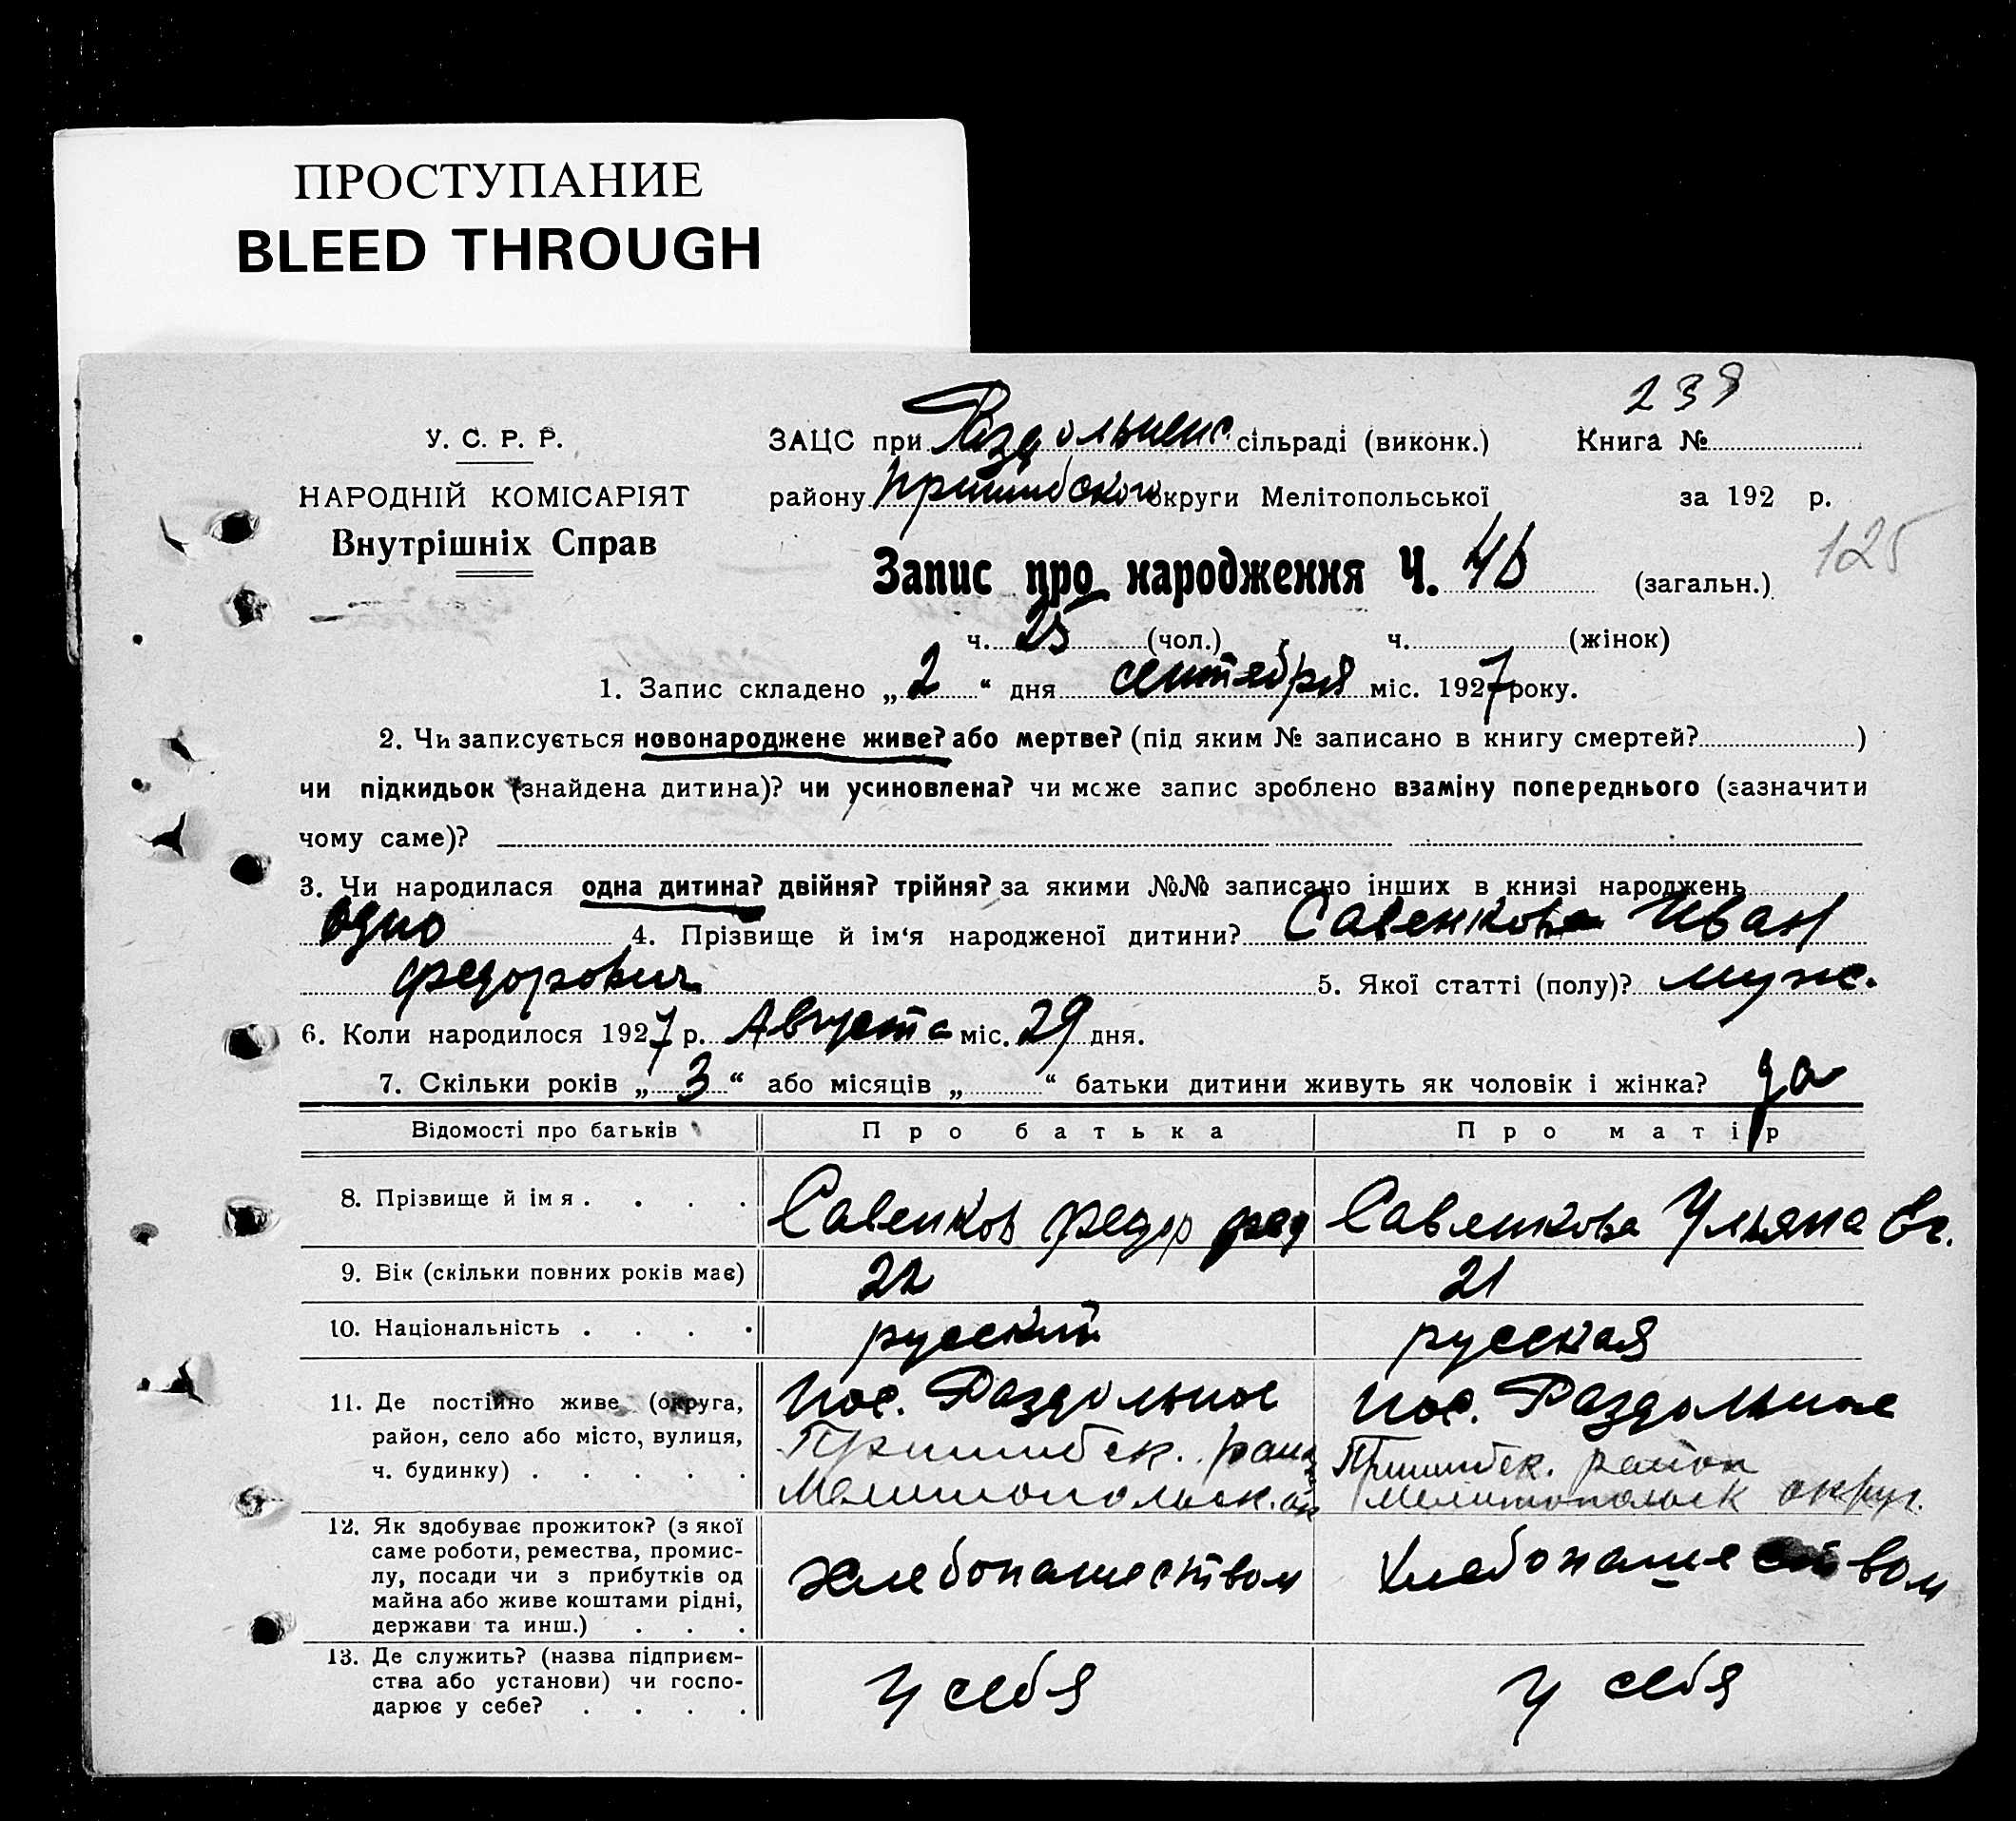 ПРОСТУПАНИЕ
BLEED THROUGH
239
У. С. Р. Р.
НАРОДНІЙ КОМІСАРІЯТ
Внутрішніх Справ
ЗАЦС при Раздольненс. сільраді (виконк.) Книга №
району Пришибского округи Мелітопольської за 192 р.
125
Запис про народження Ч. 46 (загальн.)
ч. 25 (чол.) ч. (жінок)
1. Запис складено „ 2 “ дня сентября міс. 1927 року.
2. Чи записується новонароджене живе? або мертве? (під яким № записано в книгу смертей? )
чи підкидьок (знайдена дитина)? чи усиновлена? чи може запис зроблено взаміну попереднього (зазначити
чому саме)?
3. Чи народилася одна дитина? двійня? трійня? за якими №№ записано інших в книзі народжень
одно 4. Прізвище й ім‘я народженої дитини? Савенков Иван
Федорович 5. Якої статті (полу)? муж.
6. Коли народилося 1927 р. Августа міс. 29 дня.
7. Скільки років „ 3 “ або місяців „ “ батьки дитини живуть як чоловік і жінка? да
Відомості про батьків Про батька Про матір
8. Прізвище й імя . . . . Савенков Федор Фед Савенкова Ульяна
9. Вік (скільки повних років має) 22 21
10. Національність . . . . русский русская
11. Де постійно живе (округа, район, село або місто, вулиця, ч. будинку) . . . . .
пос. Раздольное
Пришибск. район
Мелитопольск. ок
пос. Раздольное
Пришибск. район
Мелитопольск округ.
12. Як здобуває прожиток? (з якої
саме роботи, ремества, промис-
лу, посади чи з прибутків од
майна або живе коштами рідні,
держави та инш.) . . .
хлебопашеством хлебопашеством
13. Де служить? (назва підприєм-
ства або установи) чи госпо-
дарює у себе? . . . .
у себя у себя